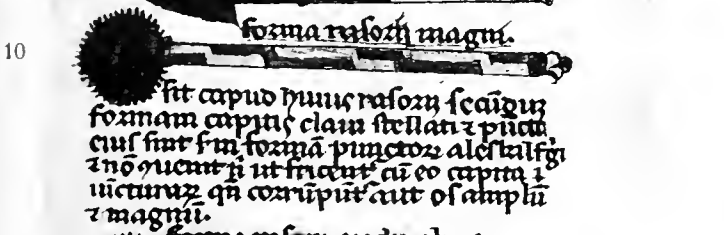 10
forma rasorij magni.
Sit capud huius rasorij secūdum
formam capitis claui stellati ⁊ pūcta
eius sint s'm formā punctorꝝ aleskilfagi
⁊ nō ꝯuenit n̄ ut fricent' cū eo capita ⁊
iūcturarꝝ qn̄ corrūpūt' aut os amplū
⁊ magnū.